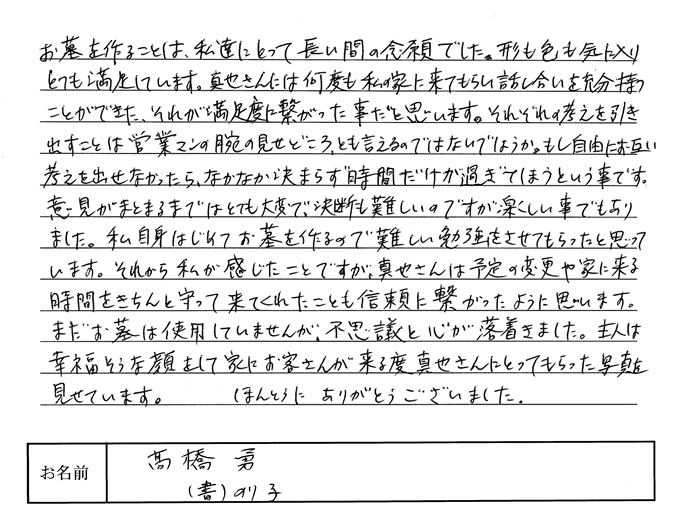 お墓を作ることは、私達にとって長い間の念願でした。形も色も気に入り
とても満足しています。真也さんには何度も私の家に来てもらい話し合いを充分持つ
ことができた、それが満足度に繋がった事だと思います。それぞれの考えを引き
出すことは営業マンの腕の見せどころ、とも言えるのではないでしょうか。もし自由にお互い
考えを出せなかったら、なかなか決まらず時間だけが過ぎてしまうという事です。
意見がまとまるまではとても大変で、決断も難しいのですが楽しい事でもあり
ました。私自身はじめてお墓を作るので難しい勉強をさせてもらったと思って
います。それから私が感じたことですが、真也さんは予定の変更や家に来る
時間をきちんと守って来てくれたことも信頼に繋がったように思います。
まだお墓は使用していませんが、不思議と心が落着きました。主人は
幸福そうな顔をして家にお客さんが来る度真也さんにとってもらった写真を
見せています。 ほんとうにありがとうございました。
お名前 髙橋 勇
(書)のり子